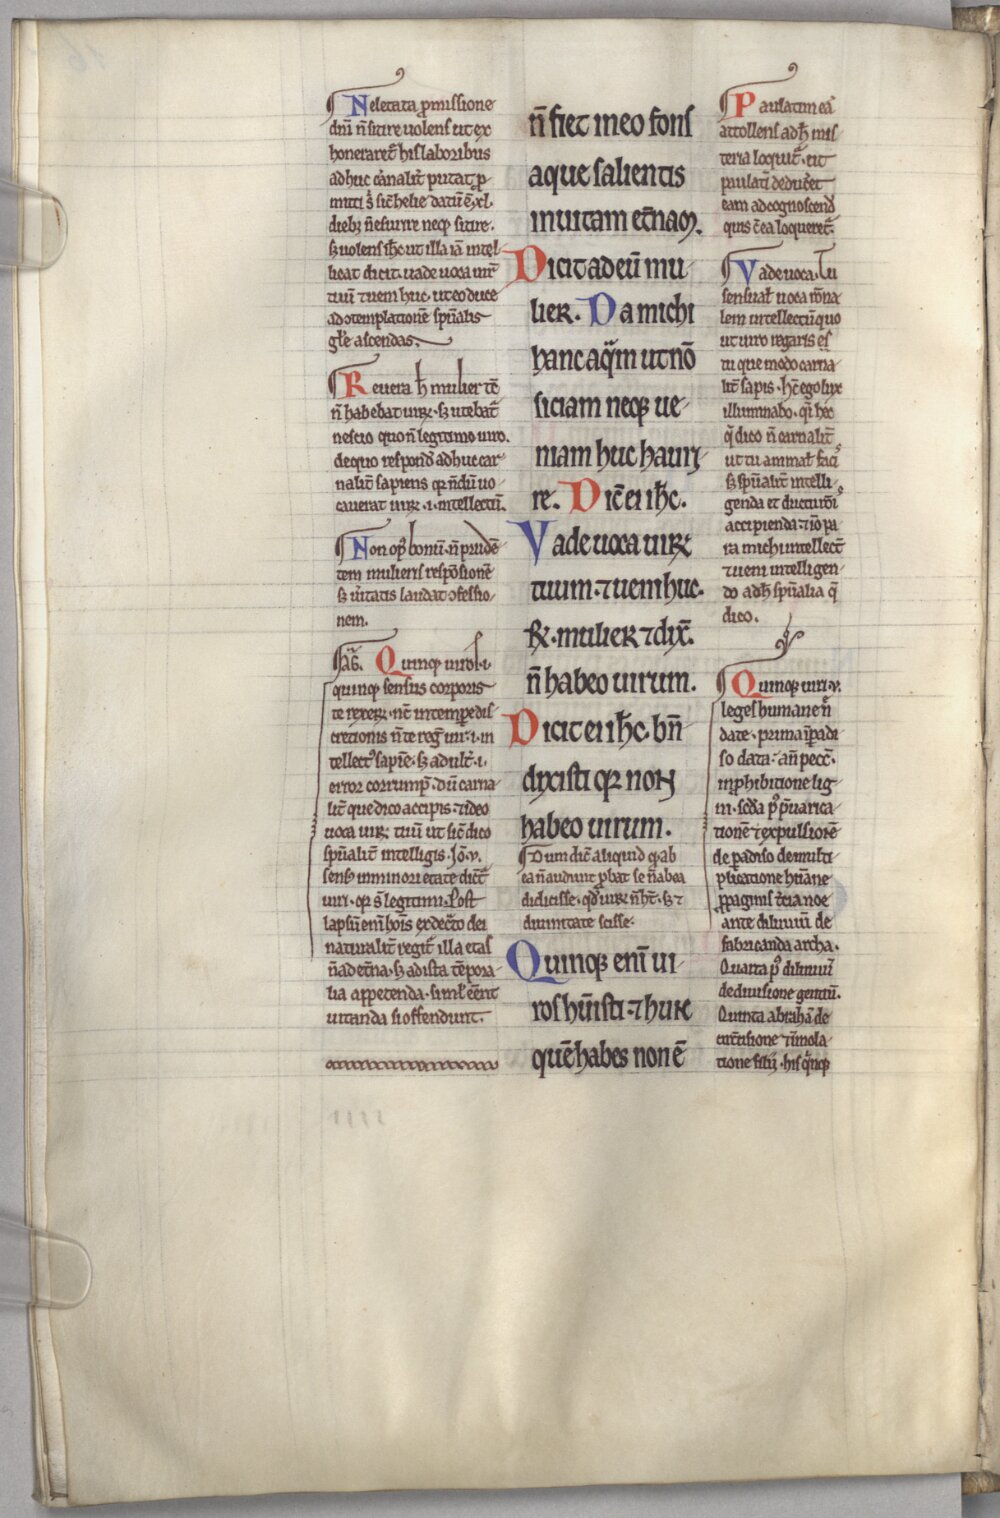 ¶ Neletata ꝓmissione
dn̄i n̄ sitire uolens ut ex
honeraret̄ his laboribus
adhuc carnalit̄ putat ꝓ
dieb; n̄ esurire neqꝫ sitire.
s; uolens ih̄c ut illa iā intel
ligat dicit. uade uoca uirū
tuū ⁊ ueni huc. ut eo duce
ad ɔtemplationē sp̄ualis
gl̄e ascendas.
¶ Reuera h̄ mulier tc̄
n̄ habebat uiꝝ. s; utebat̄
nescio quo n̄ legitimo uiro.
de quo respond̄ adhuc car
nalit̄ sapiens qꝛ n̄dū uo
cauerat uiꝝ .i. intellectū.
¶ Non op̄ bonū. n̄ prudē
tem mulieris respōsionē
s; ūitatis laudat ɔfessio
nem.
¶ aḡ. Quinqꝫ uiros .i.
quinqꝫ sensus corporis
te rexeꝝ. nc̄ intemper̄ dis
cretionis n̄ te reḡ uir .i. in
tellect᷒ sapīe. s; adult̄ .i.
error corrump̄. dū carna
lit̄ que dico accipis. ⁊ ideo
uoca uiꝝ tuū ut sic̄ dico
sp̄ualit̄ intelligis. Jo. v.
sens᷒ in minori etate dicr̄
uiri. qꝛ s̄ legitimi. Post
lapsū eni hoīs ex dec̄to dei
naturalit̄ regit̄ illa etas
n̄ ad et̄na. s; ad ista tēpora
lia appetenda. simł eēnt
uitanda si offendunt.
n̄ fiet in eo fons
aque salientis
in uitam et̄nam.
Dicit ad eū mu
lier. Da michi
hanc aquam ut nō
siciam neqꝫ ue
niam huc hauri
re. Dic̄ ei ih̄c.
Vade uoca uiꝝ
tuum. ⁊ ueni huc.
R̄. mulier ⁊ dix̄.
n̄ habeo uirum.
Dicit ei ih̄c. bn̄
dixisti qꝛ non
habeo uirum.
¶ Dum dic̄ aliquid qꝫ ab
ea n̄ audiunt ꝓbat se n̄ ab ea
didicisse. qd̄ uiꝝ n̄ ht̄. s; ⁊
diuinitate scisse.
Quinqꝫ enī ui
ros hūisti. ⁊ hunc
quē habes non ē
¶ Paulatim eā
attollens ad h̄ mis
teria loquit̄. ut
paulatī deducet̄
eam ad cognoscend̄
quis c̄ ea loqueret̄.
¶ Vade uoca. Tu
sensual̄ uoca rōna
lem intellectū quo
ut uiro regaris es
tu que modo carna
lit̄ sapis. hc̄ ego lux
illuminabo. qr̄ hec
q̄ dico n̄ carnalit̄
ut tu animal̄ facis
s; sp̄ualit̄ intelli
genda et ducturōi
accipienda. ⁊ iō pa
ra michi intellect̄
⁊ ueni intelligen
do ad h̄ sp̄ualia q̄
dico.
¶ Quinqꝫ uiri .v.
leges humane n̄
date. prima ī padi
so data. an̄ pecc̄.
in ꝓhibitione lig
ni. scđa p᷒ p̄uarica
tionē ⁊ expulsionē
de padiso de multi
plicatione hūane
ꝓpaginis t̄cia noe
ante diluuiū de
fabricanda archa.
Quarta p᷒ diluuiū
de diuisione gentiū.
Quinta abrahā de
circ̄cisione ⁊ īmola
tione filij. his quinqꝫ